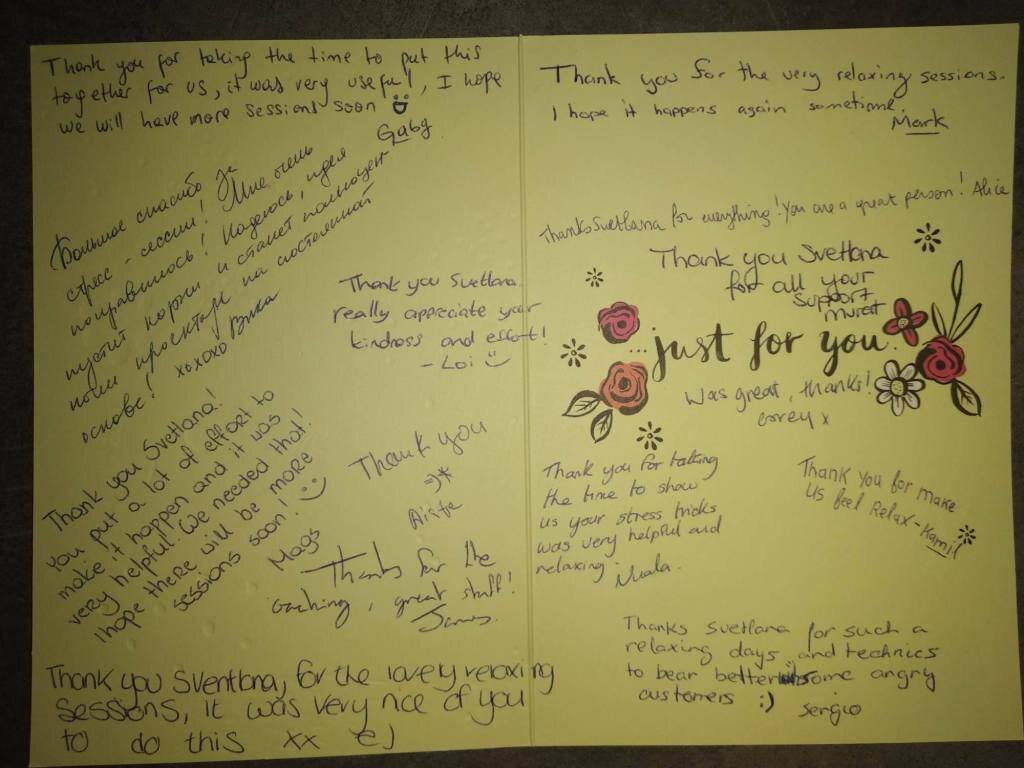 Thank you for taking the time to put this
together for us, it was very useful!, I hope
we will have more sessions soon
Gabg
Большое спасибо за
стресс-сессии! Мне очень
понравилось! Надеюсь, идея
пустит корни и станет
проктаре на постоянной
основе! хохохо Вика
Thank you Svetlana.
really appreciate your
kindness and effort!
- Loi
Thank you Svetlana!
you put a lot of effort to
make it happen and it was
very helpful! We needed that!
I hope there will be more
sessions soon!
Mags
Thank you
Aiste
Thanks for the
Coaching, great stuff!
James.
Thank you Sventlana, for the lovely relaxing
sessions, it was very nice of you
to do this xx EJ
Thank you for the very relaxing sessions.
I hope it happens again sometime.
Mark
Thanks Svetlana for everything! You are a great person! Alice
Thank you Svetlana
for all your
support
murat
...just for you.
Was great, thanks!
Corey x
Thank you for talking
the time to show
us your stress tricks
was very helpful and
relaxing.
Nuala.
Thank you for make
us feel Relax-Kamil
Thanks Svetlana for such a
relaxing days and technics
to bear better some angry
customers :)
Sergio